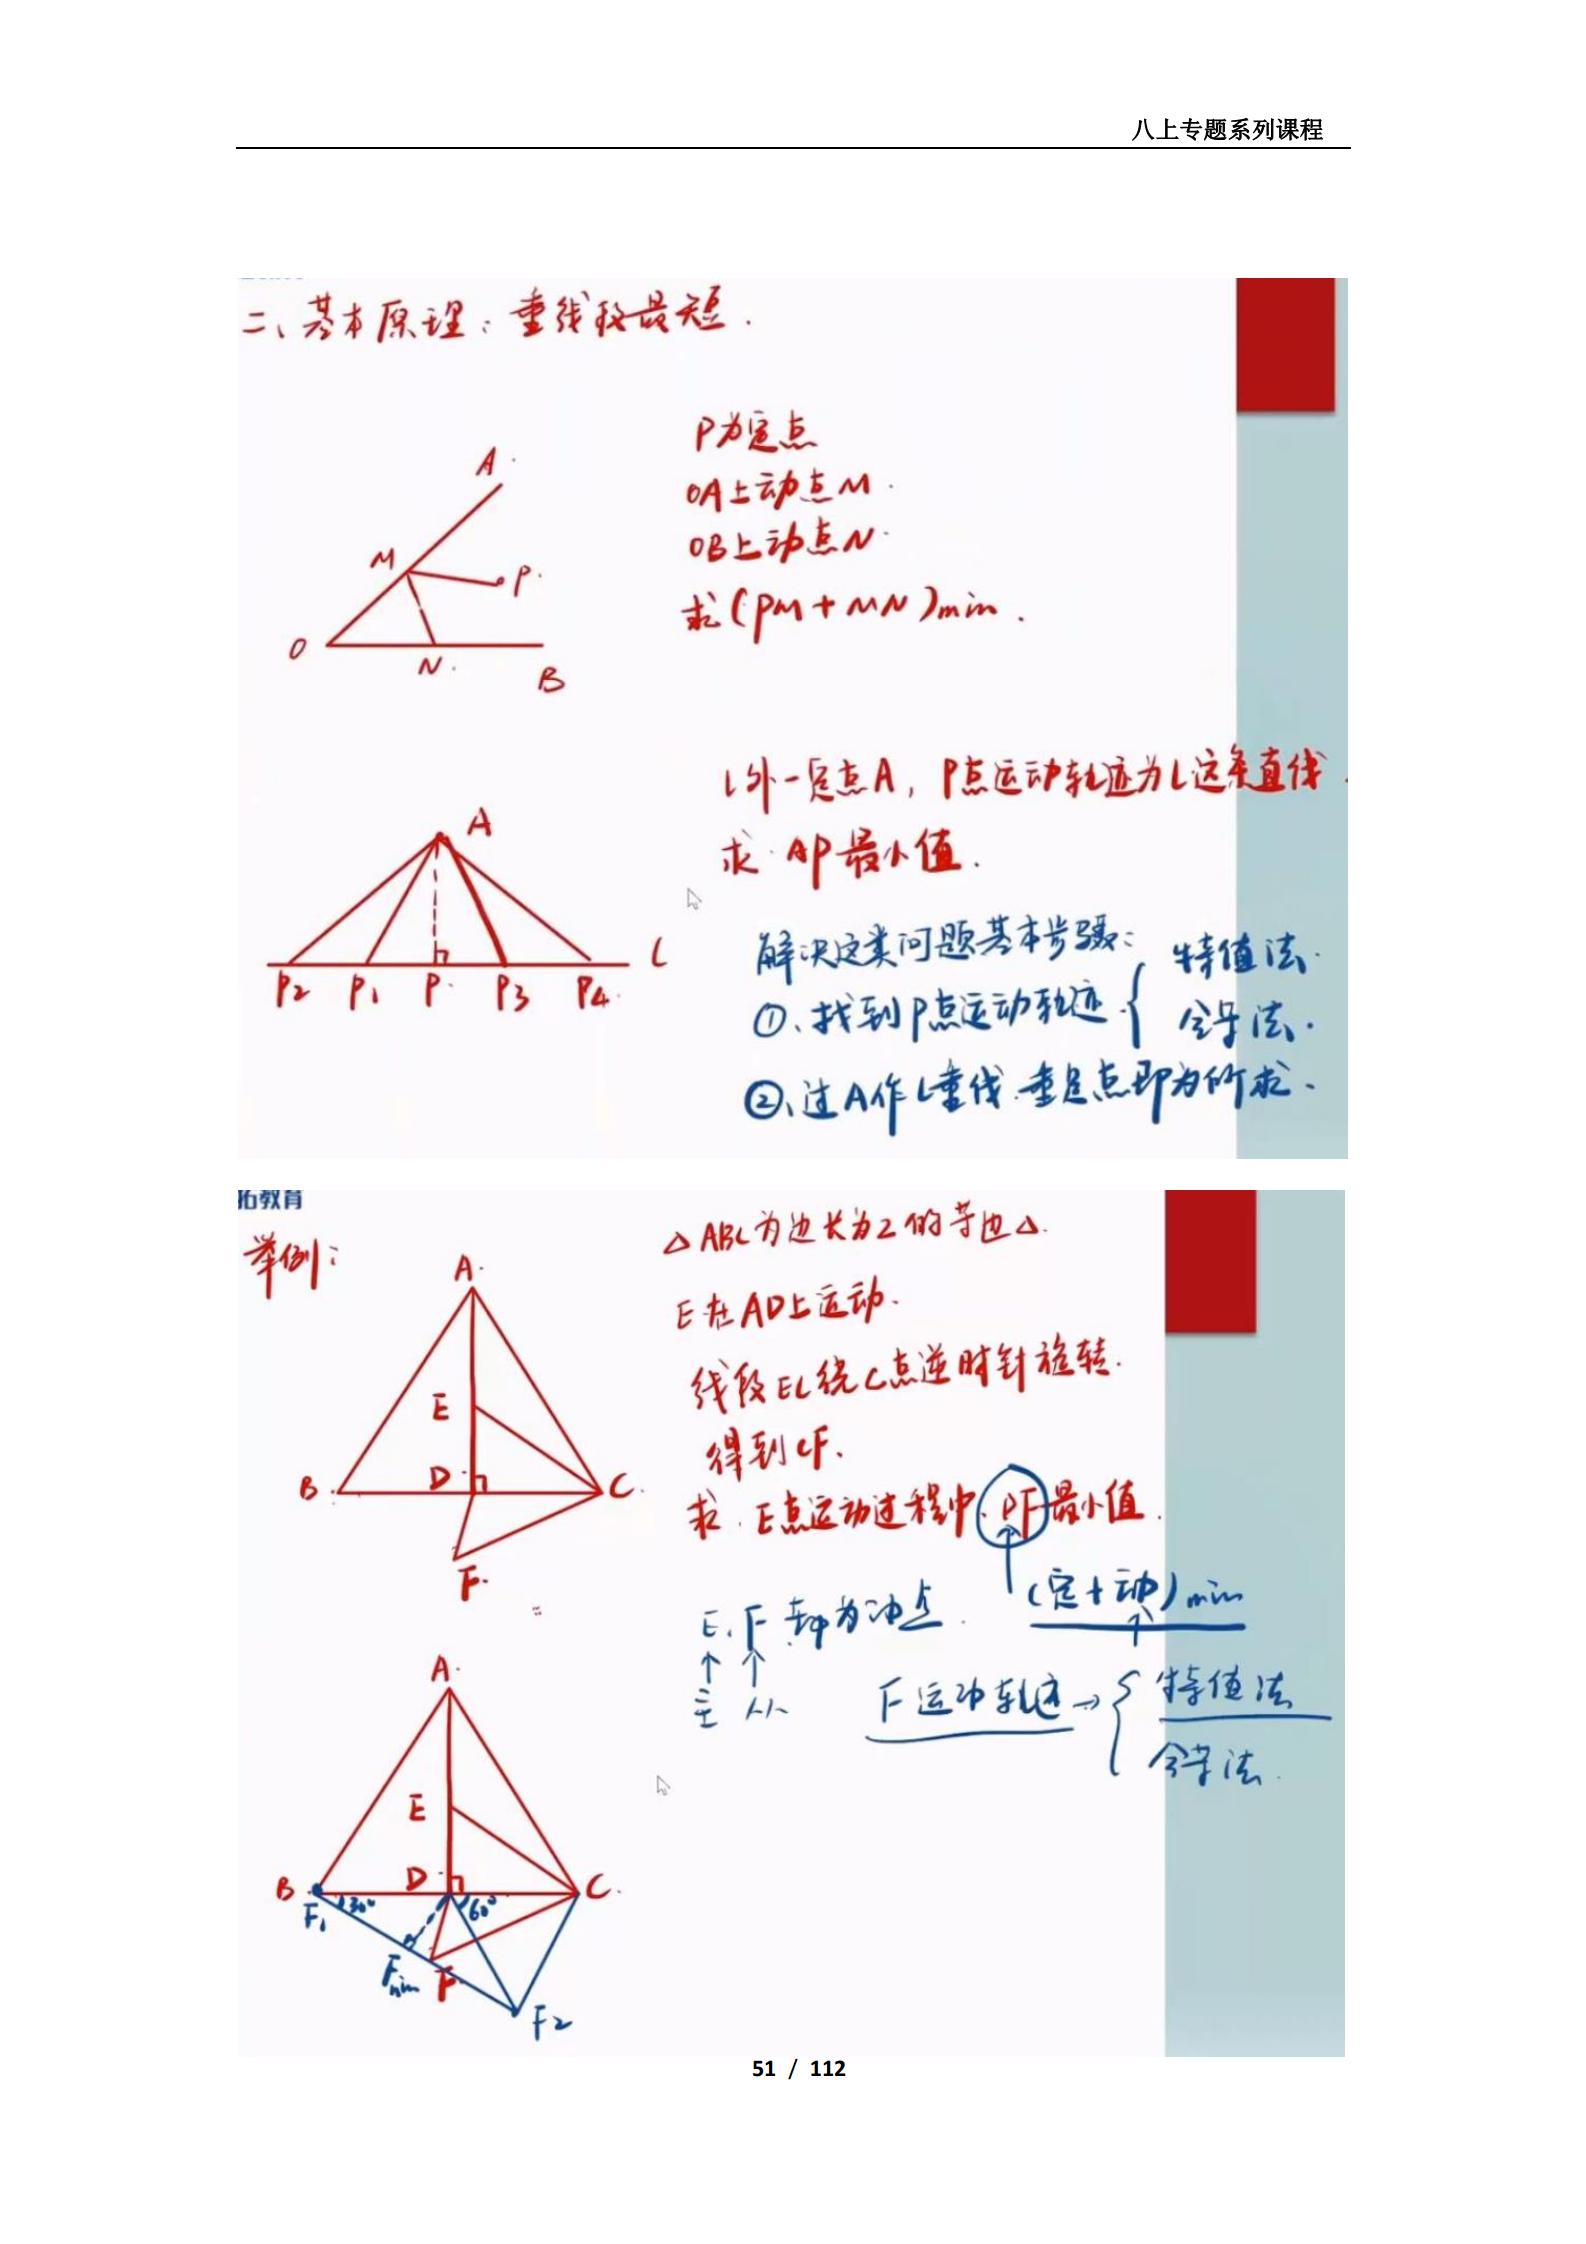 八上专题系列课程
二、基本原理：垂线段最短.
A.
M
P.
O
N.
B
P为定点
OA上动点M.
OB上动点N.
求(PM+MN)min.
l外一定点A，P点运动轨迹为l这条直线.
求AP最小值.
A
P2 P1 P. P3 P4.
L
解决这类问题基本步骤：
①、找到P点运动轨迹.{
特值法.
全等法.
②、过A作l垂线.垂足点即为所求.
拓教育
举例：
A.
E
B.
D
C.
F.
△ABC为边长为2的等边△.
E在AD上运动.
线段EC绕C点逆时针旋转.
得到CF.
求.E点运动过程中.DF最小值.
(定+动)min
E、F 都为动点.
主 从
F运动轨迹→{
特值法
全等法.
A.
E
B
D
C.
F1
30°
60°
Fmin
F
F2
51 / 112